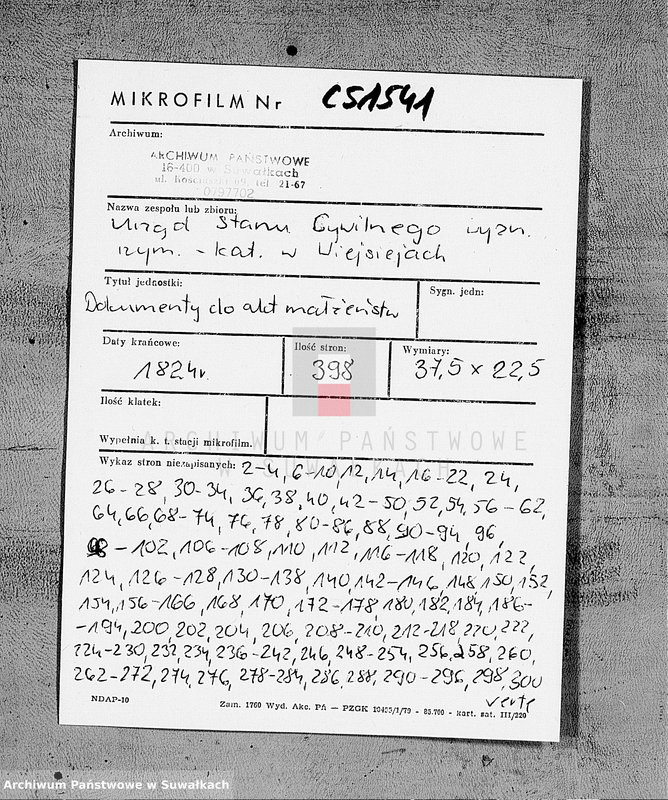 MIKROFILM Nr CS1541
Archiwum:
ARCHIWUM PAŃSTWOWE
16-400 w Suwałkach
ul. Kościuszki 69, tel. 21-67
0797702
Nazwa zespołu lub zbioru:
Urząd Stanu Cywilnego wyzn.
rzym. - kat. w Wiejsiejach
Tytuł jednostki:
Sygn. jedn:
Dokumenty do akt małżeństw
Daty krańcowe:
Ilość stron:
Wymiary:
1824r.
398
37,5 x 22,5
Ilość klatek:
ARCHIWUM PAŃSTWOWE
W SUWAŁKACH
Wypełnia k. t. stacji mikrofilm.
Wykaz stron niezapisanych: 2-4, 6-10, 12, 14, 16-22, 24,
26-28, 30-34, 36, 38, 40, 42-50, 52, 54, 56-62,
64, 66, 68-74, 76, 78, 80-86, 88, 90-94, 96,
98-102, 106-108, 110, 112, 116-118, 120, 122,
124, 126-128, 130-138, 140, 142-146, 148, 150, 152,
154, 156-166, 168, 170, 172-178, 180, 182, 184, 186-
-194, 200, 202, 204, 206, 208-210, 212-218, 220, 222,
224-230, 232, 234, 236-242, 246, 248-254, 256, 258, 260,
262-272, 274, 276, 278-284, 286, 288, 290-296, 298, 300
verte
NDAP-10
Zam. 1760 Wyd. Akc. Pń — PZGK 10455/1/79 - 85.700 - kart. sat. III/220
Archiwum Państwowe w Suwałkach